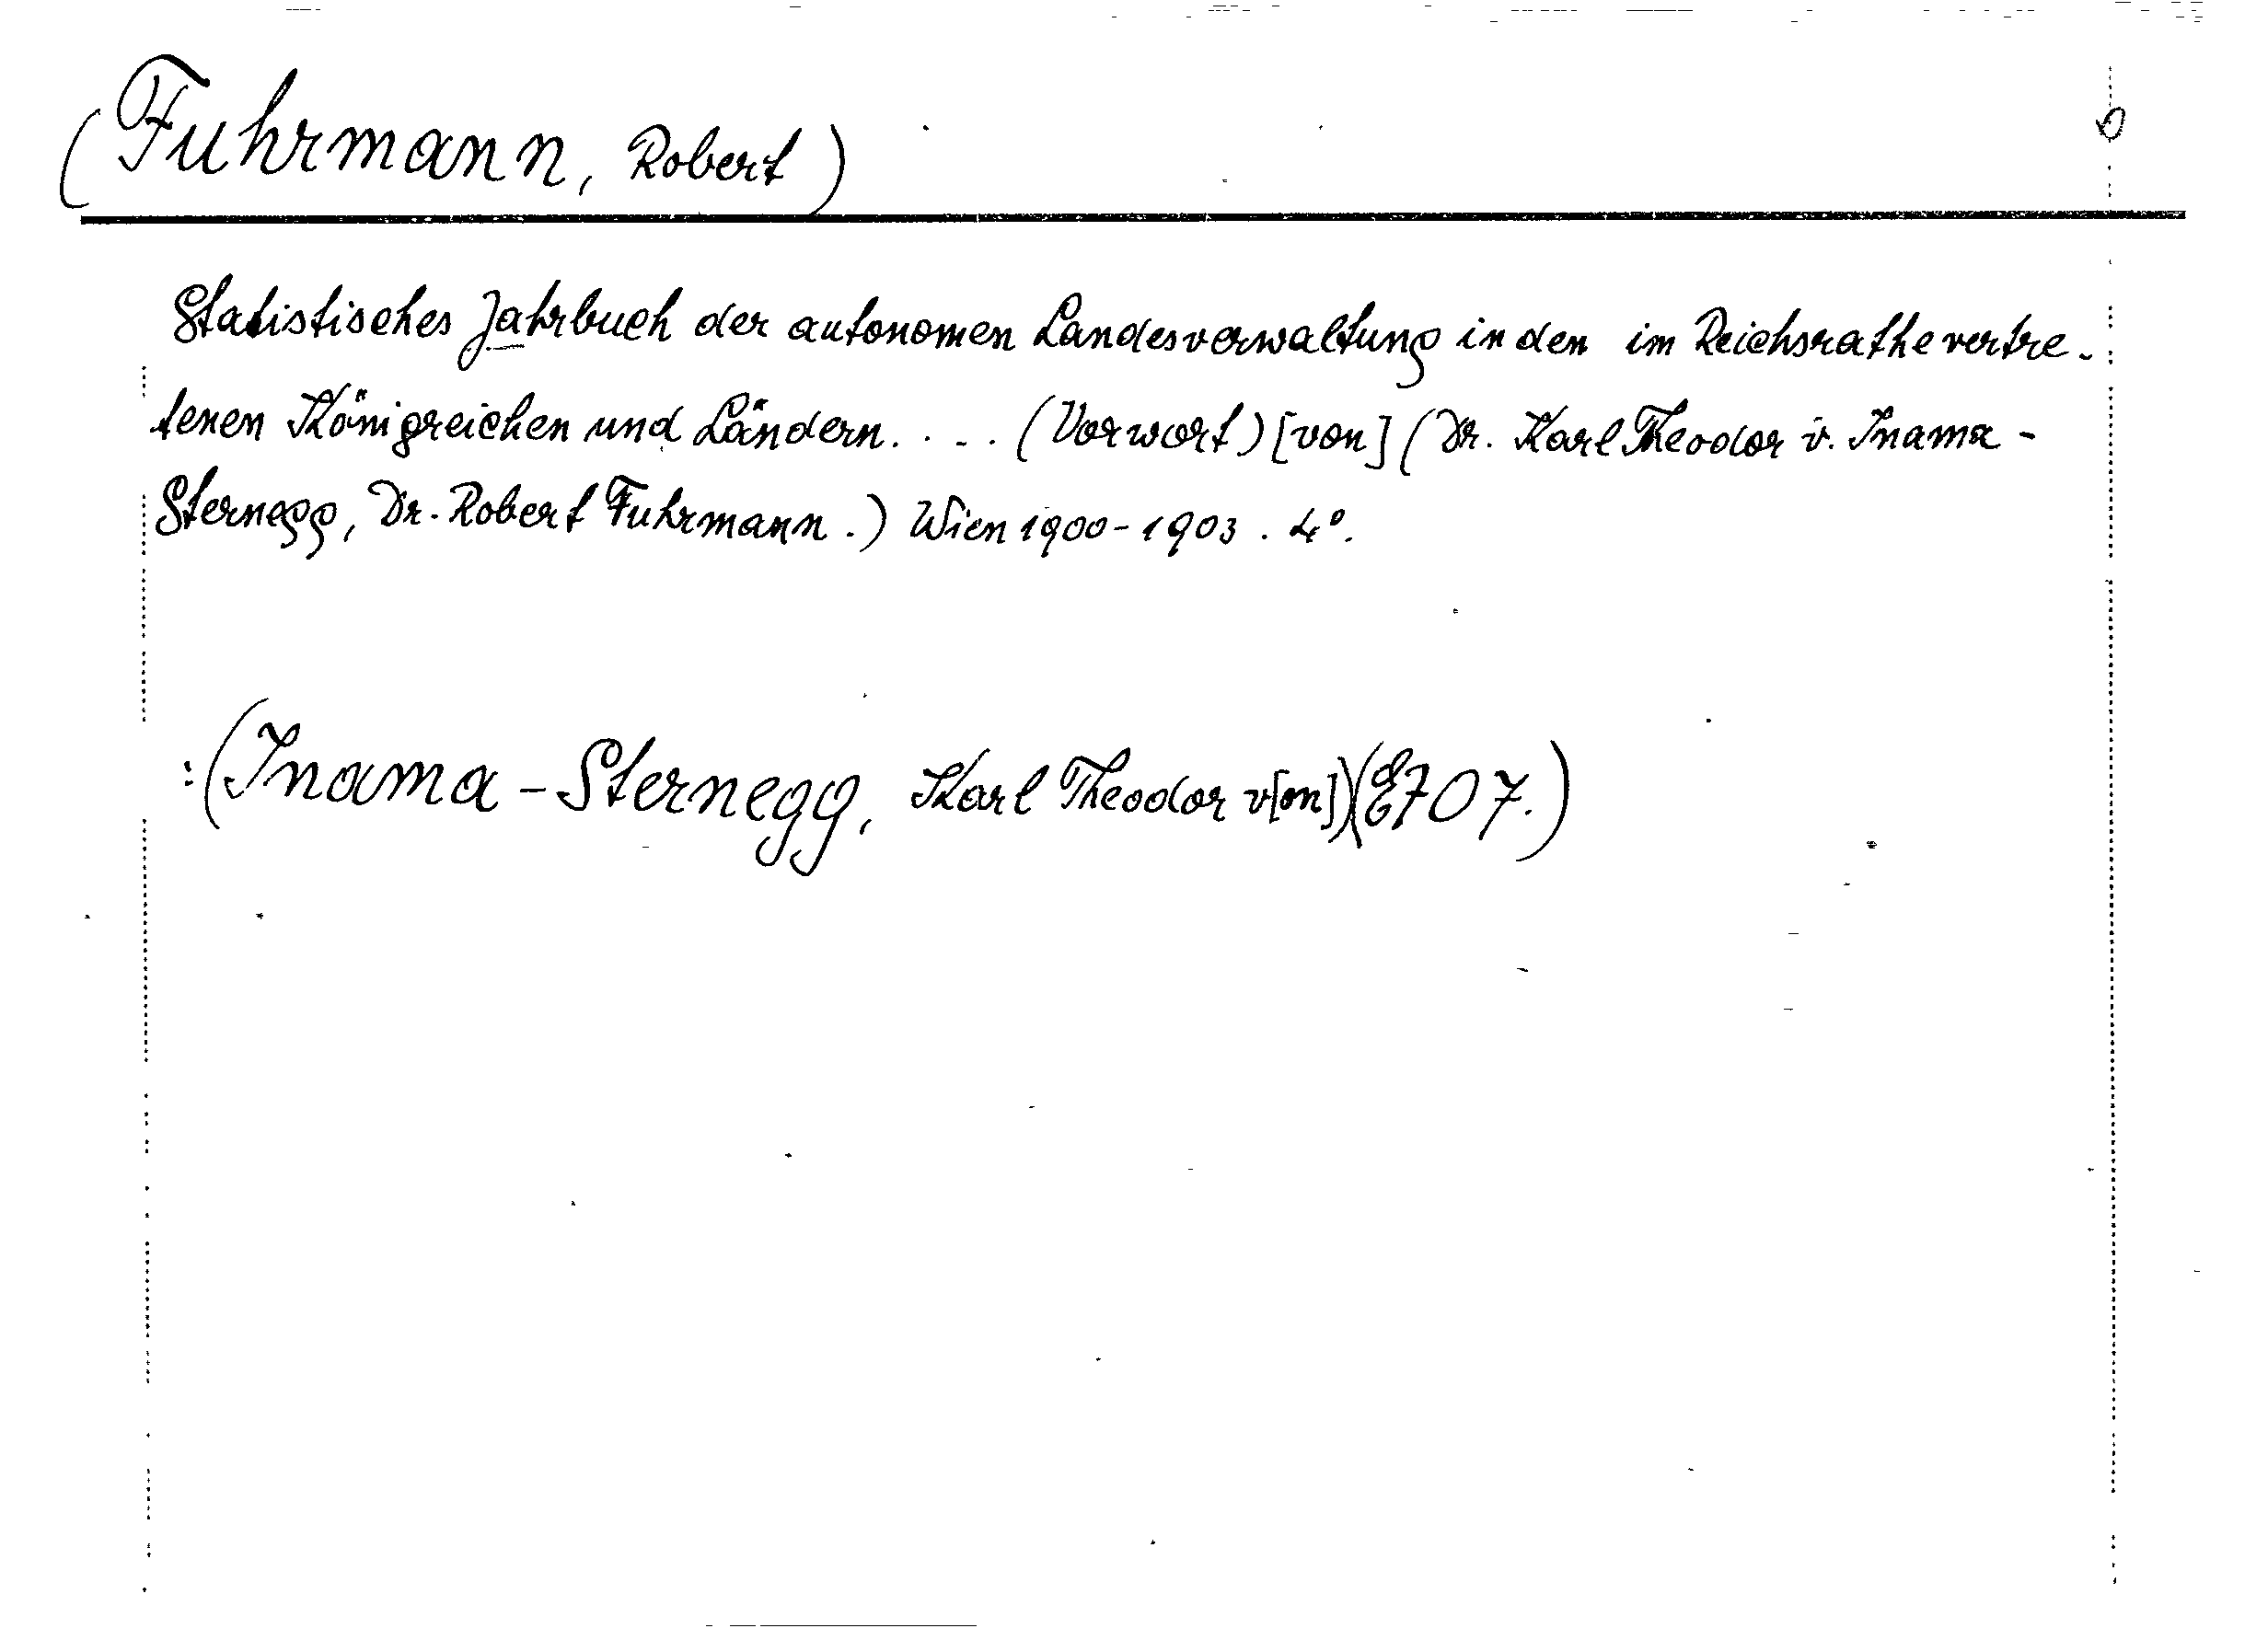 (Fuhrmann, Robert)
Statistisches Jahrbuch der autonomen Landesverwaltung in den im Reichsrathe vertre-
tenen Königreichen und Ländern. ... (Vorwort) [von] (Dr. Karl Theodor v. Inama-
Sternegg, Dr. Robert Fuhrmann.) Wien 1900-1903. 4°.
:(Inama-Sternegg, Karl Theodor v[on])(E707.)